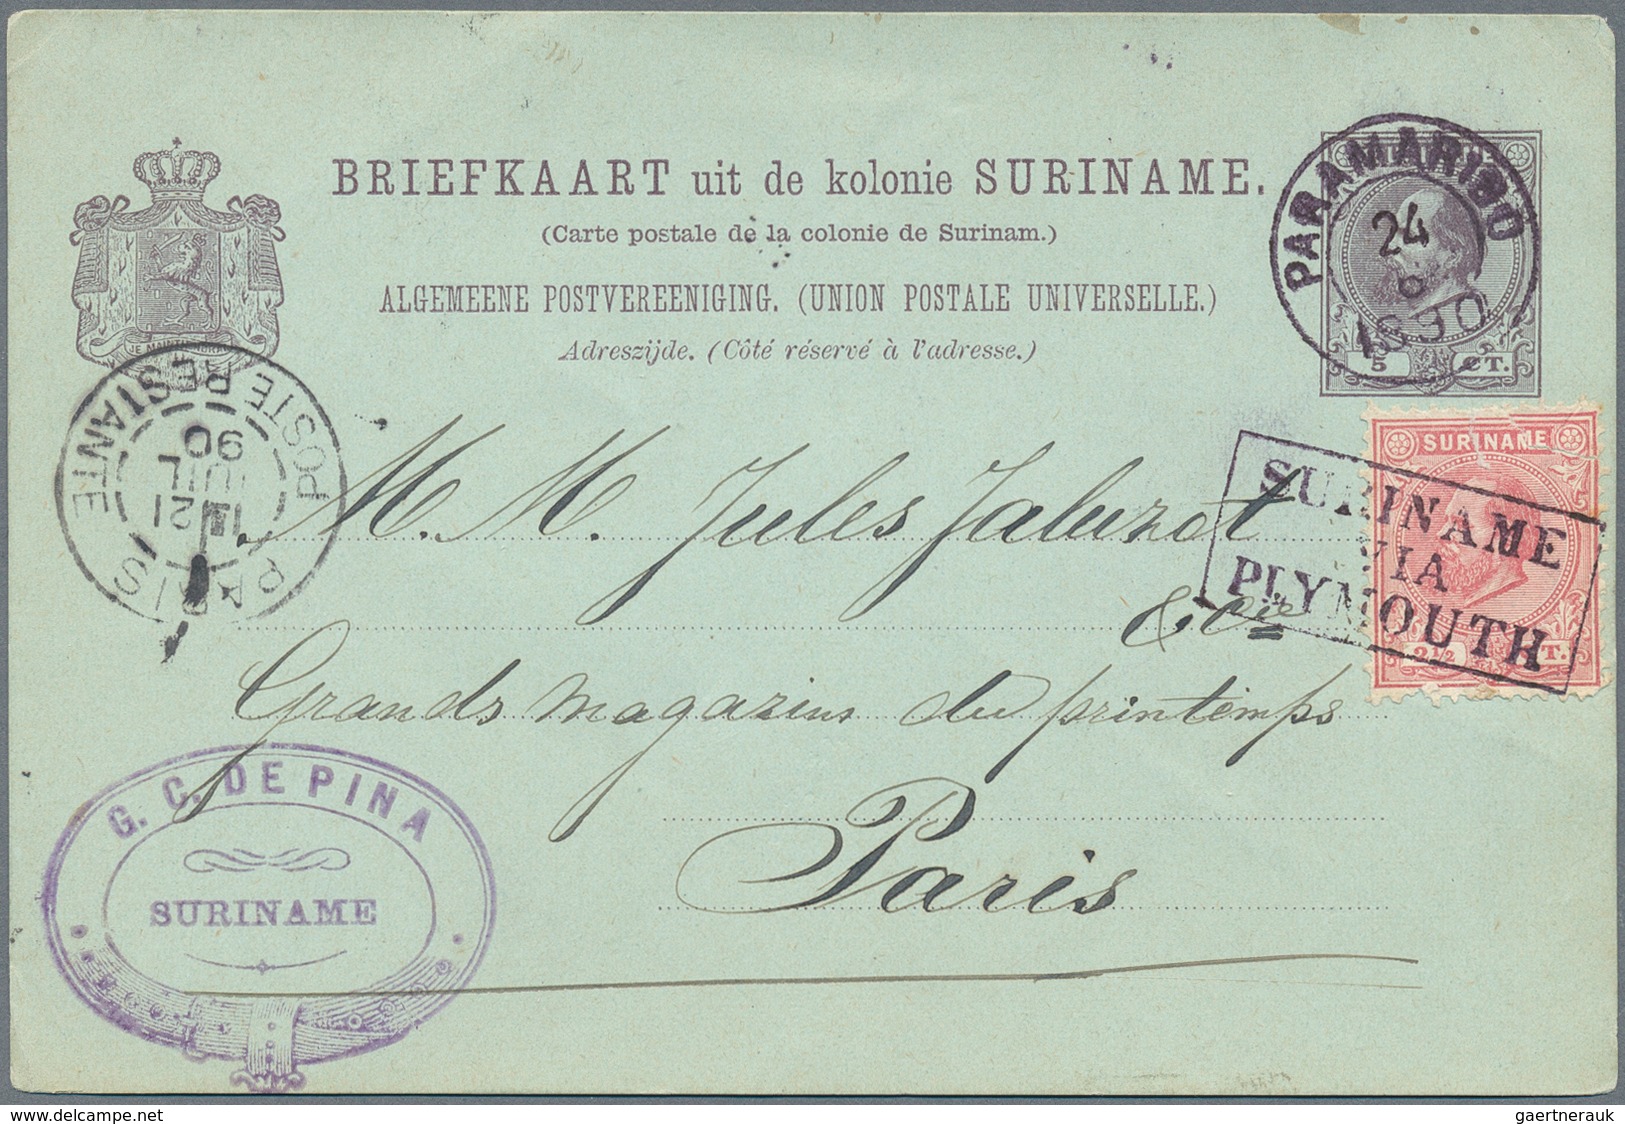 BRIEFKAART uit de kolonie SURINAME.
(Carte postale de la colonie de Surinam.)
ALGEMEENE POSTVEREENIGING. (UNION POSTALE UNIVERSELLE.)
Adreszijde. (Côté réservé à l'adresse.)
PARAMARIBO
24
6
1890
5 CT.
JE MAINTIENDRAI
PARIS
POSTE RESTANTE
21
JUIL
90
SURINAME
2 1/2 CT.
SURINAME
VIA
PLYMOUTH
M. M. Jules Jaluzot
& Cie
Grands magazins du printemps
Paris
G. C. DE PINA
SURINAME
delcampe.net
gaertnerauk